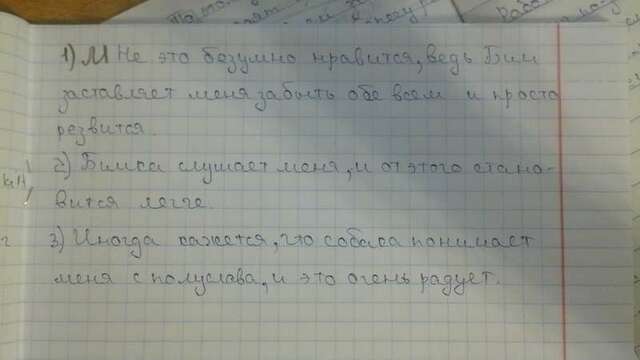 1) М Не это безумно нравится, ведь Бим
заставляет меня забыть обе всем и просто
резвится.
2) Бимка слушает меня, и от этого стано-
вится легче.
3) Иногда кажется, что собака понимает
меня с полуслава, и это очень радует.